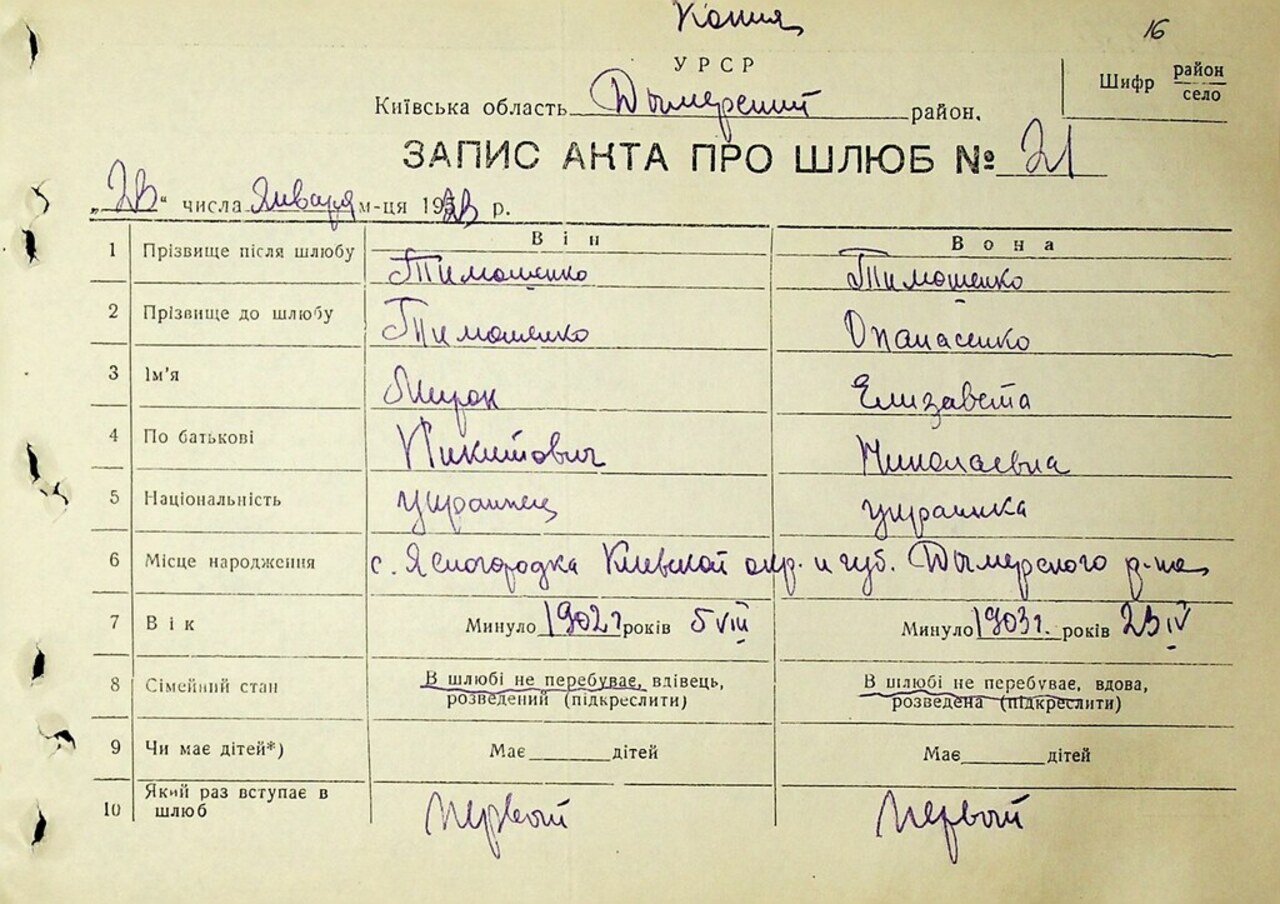 Копия
16
УРСР
Шифр район село
Київська область Дымерский район.
ЗАПИС АКТА ПРО ШЛЮБ № 21
„23“ числа Января м-ця 19 р.
Він Вона
1 Прізвище після шлюбу Тимошенко Тимошенко
2 Прізвище до шлюбу Тимошенко Опанасенко
3 Ім'я Мирон Елизавета
4 По батькові Никитович Николаевна
5 Національність украинец украинка
6 Місце народження с. Ясногородка Киевской окр. и губ. Дымерского р-на
7 Вік Минуло 1902 г років 5 VIII Минуло 1903 г. років 23 IV
8 Сімейний стан В шлюбі не перебуває, вдівець, В шлюбі не перебуває, вдова,
розведений (підкреслити) розведена (підкреслити)
9 Чи має дітей*) Має дітей Має дітей
10 Який раз вступає в шлюб первый первый